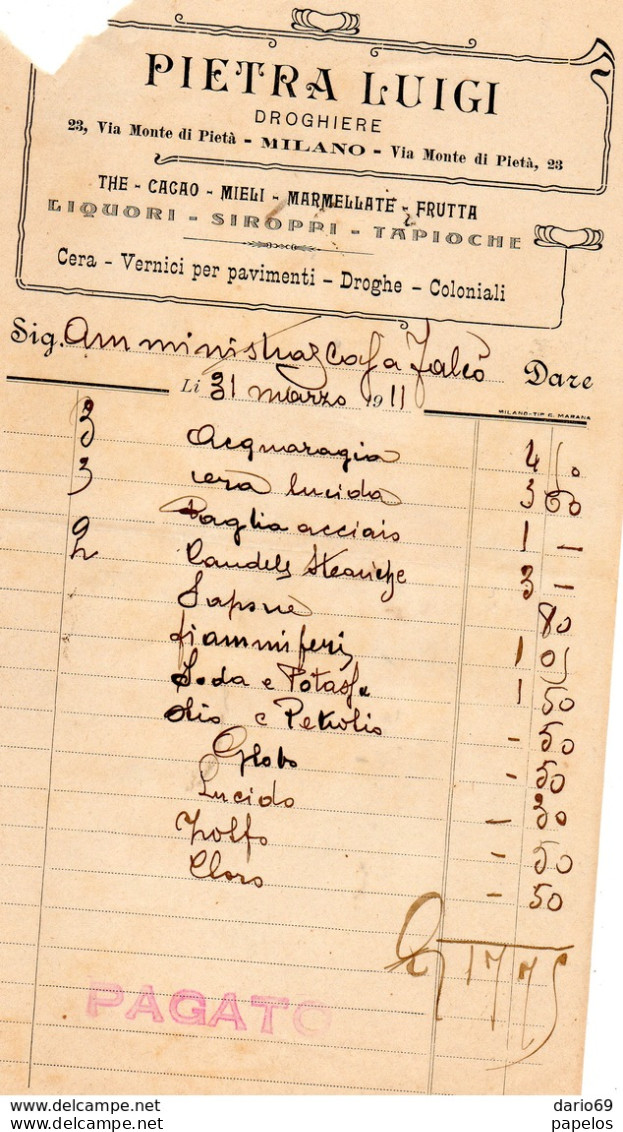 PIETRA LUIGI
DROGHIERE
23, Via Monte di Pietà - MILANO - Via Monte di Pietà, 23
THE - CACAO - MIELI - MARMELLATE - FRUTTA
LIQUORI - SIROPPI - TAPIOCHE
Cera - Vernici per pavimenti - Droghe - Coloniali
Sig. Amministraz Casa Falcò Dare
Li 31 marzo 1911
MILANO-TIP. C. MARANA
3 Acquaragia 4 50
3 cera lucida 3 60
Paglia acciaio 1 —
2 Candele Steariche 3 —
Sapone 80
fiammiferi 1 05
Soda e Potassa 1 50
Olio e Petrolio - 50
Globo - 50
Lucido - 30
Zolfo - 50
Cloro - 50
17 75
PAGATO
dario69
papelos